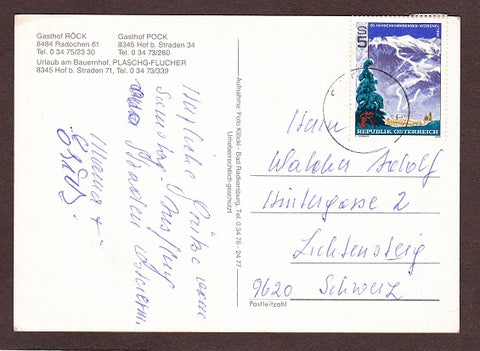 Gasthof RÖCK
8484 Radochen 61
Tel. 0 34 75/23 30
Gasthof POCK
8345 Hof b. Straden 34
Tel. 0 34 73/260
Urlaub am Bauernhof, PLASCHG-FLUCHER
8345 Hof b. Straden 71, Tel. 0 34 73/339
Herzliche Grüße vom
Samstag-Ausflug
Straden
Mama +
Aufnahme: Foto Klöckl · Bad Radkersburg, Tel. 0 34 76 - 24 77
Urheberrechtlich geschützt
S5
REPUBLIK ÖSTERREICH
Herrn
Walcher Adolf
Hintergasse 2
Lichtensteig
9620 Schweiz
Postleitzahl